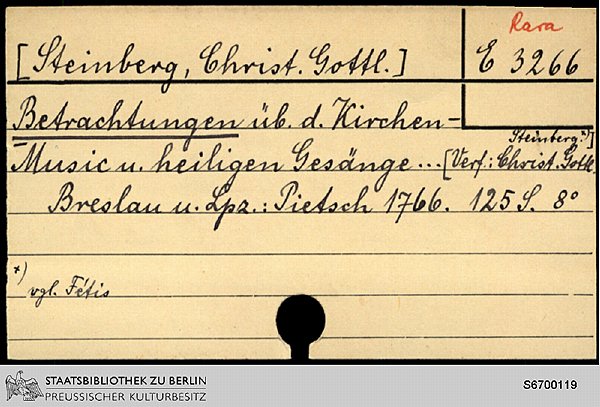 Rara
[Steinberg, Christ. Gottl.]
E 3266
Betrachtungen üb. d. Kirchen-
Music u. heiligen Gesänge ... [Verf.: Christ. Gottl.
Steinberg.*)]
Breslau u. Lpz.: Pietsch 1766. 125 S. 8°
*)
vgl. Fétis
STAATSBIBLIOTHEK ZU BERLIN
PREUSSISCHER KULTURBESITZ
S6700119